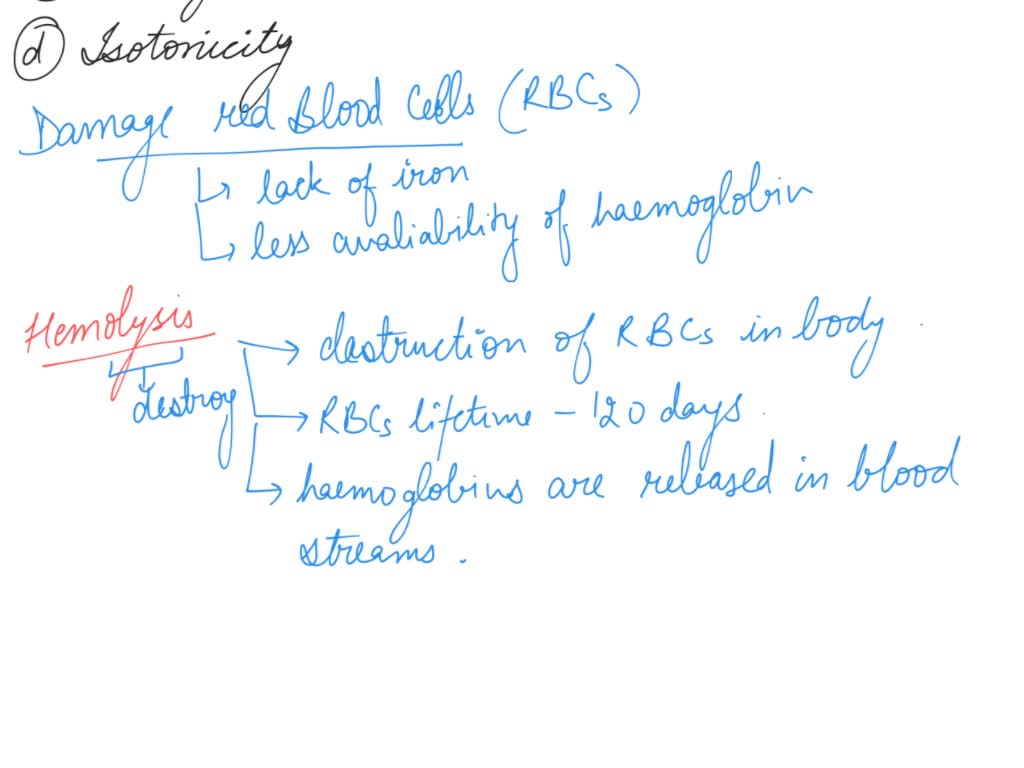 d Isotonicity
Damage red Blood Cells (RBCs)
↳ lack of iron
↳ less avaliability of haemoglobin
Hemolysis → destruction of RBCs in body
destroy
→ RBCs lifetime - 120 days.
↳ haemoglobins are released in blood
streams.